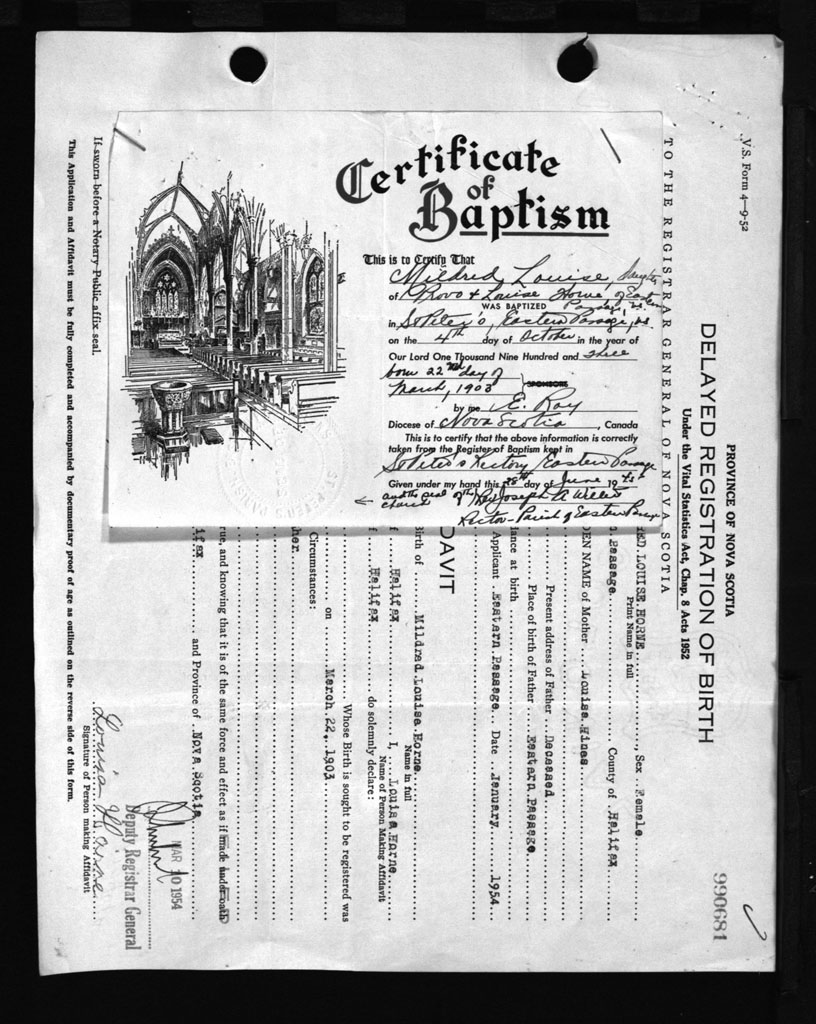 Certificate
of
Baptism
This is to Certify That
Mildred Louise, daughter
of Provo & Louise Horne of Eastern
Passage, N.S.
WAS BAPTIZED
in St Peter's, Eastern Passage, N.S.
on the 4th day of October in the year of
Our Lord One Thousand Nine Hundred and three
born 22nd day of
March, 1903
SPONSORS
by me E. Roy
Diocese of Nova Scotia, Canada
This is to certify that the above information is correctly
taken from the Register of Baptism kept in
St Peter's Rectory Eastern Passage
Given under my hand this 28th day of June 19
and the seal of the Rev Joseph A
church
Rector - Parish of Eastern Passage
V.S. Form 4—9-52
PROVINCE OF NOVA SCOTIA
DELAYED REGISTRATION OF BIRTH
Under the Vital Statistics Act, Chap. 8 Acts 1952
990681
TO THE REGISTRAR GENERAL OF NOVA SCOTIA
RED LOUISE HORNE, Sex Female
Print Name in full
Passage County of Halifax
DEN NAME of Mother Louise Hines
Present address of Father Deceased
Place of birth of Father Eastern Passage
ance at birth
Applicant Eastern Passage Date January 1954
DAVIT
Birth of Mildred Louise Horne
Name in full
f Halifax I, Louisa Horne
Name of Person Making Affidavit
f Halifax do solemnly declare:
Whose Birth is sought to be registered was
on March 22, 1903
Circumstances:
her.
rue, and knowing that it is of the same force and effect as if made under oath
ifax and Province of Nova Scotia
MAR 10 1954
Deputy Registrar General
Louisa Horne
Signature of Person making Affidavit
If sworn before a Notary Public affix seal.
This Application and Affidavit must be fully completed and accompanied by documentary proof of age as outlined on the reverse side of this form.